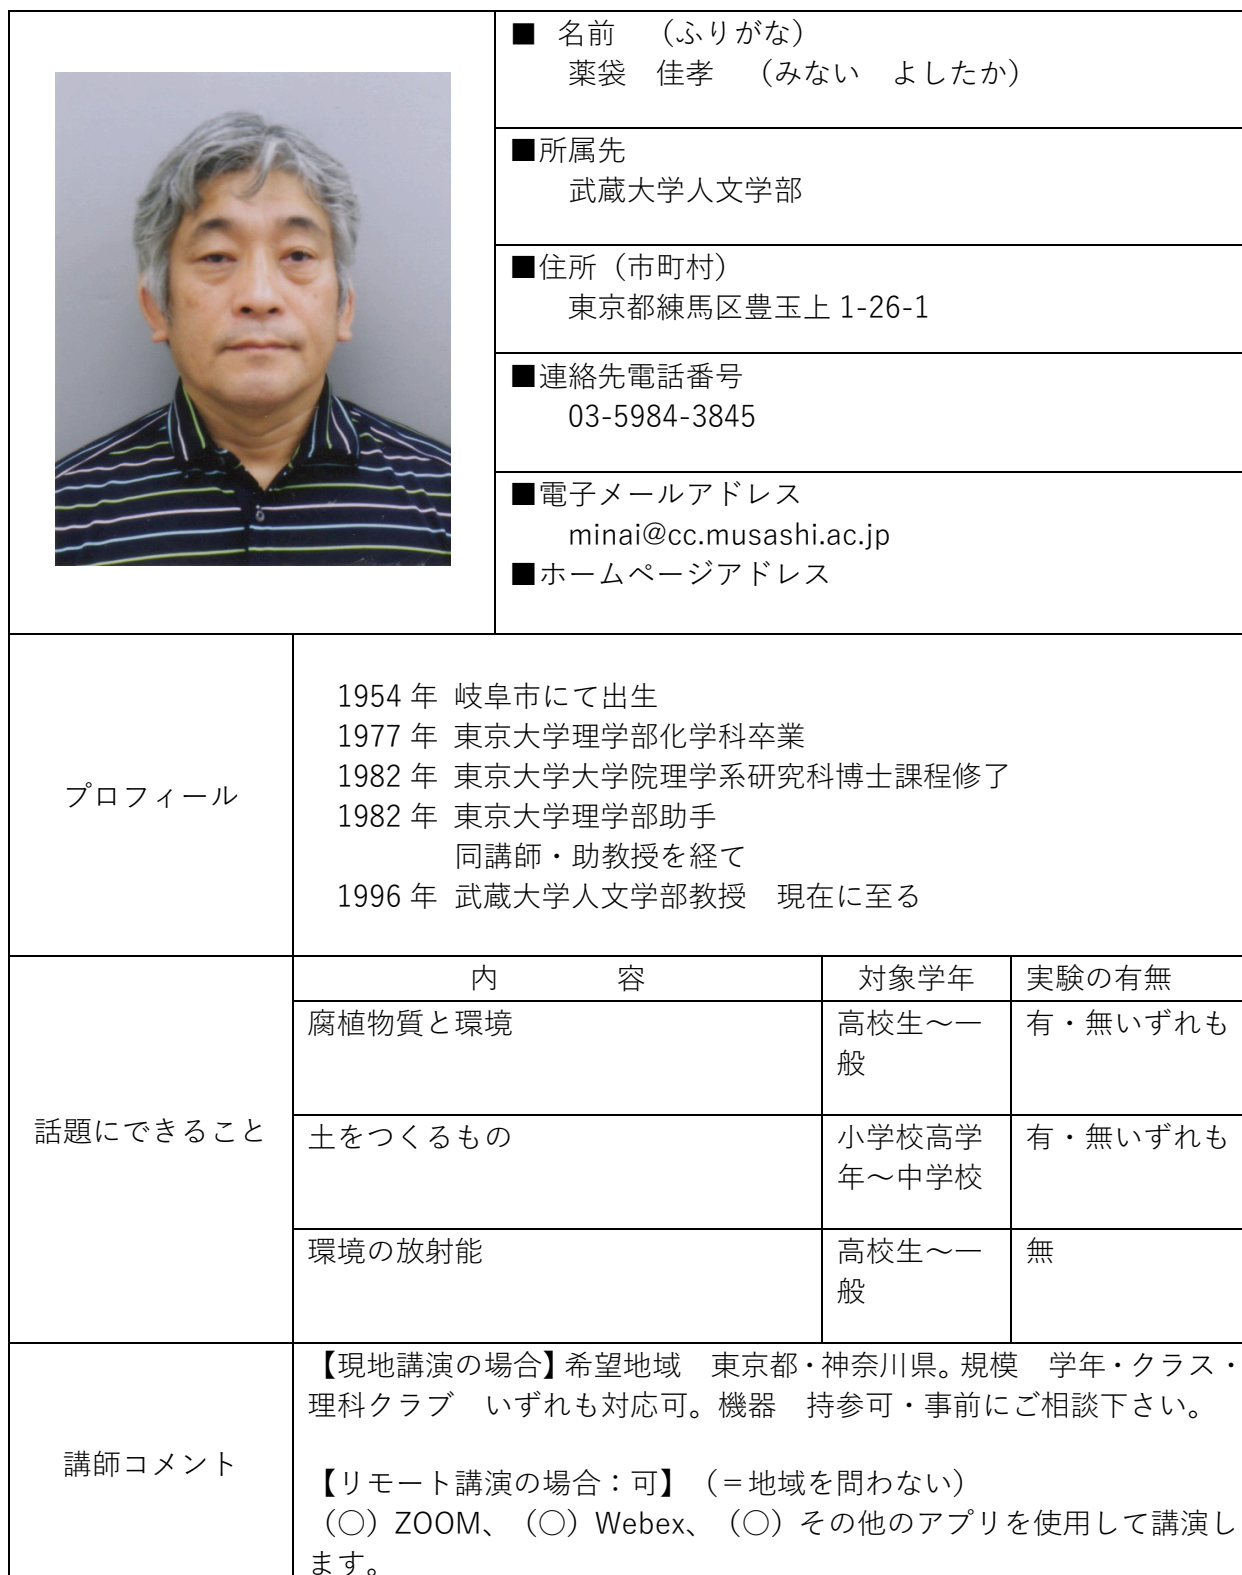 ■ 名前　（ふりがな）
薬袋　佳孝　（みない　よしたか）
■所属先
武蔵大学人文学部
■住所（市町村）
東京都練馬区豊玉上 1-26-1
■連絡先電話番号
03-5984-3845
■電子メールアドレス
minai@cc.musashi.ac.jp
■ホームページアドレス
プロフィール
1954 年 岐阜市にて出生
1977 年 東京大学理学部化学科卒業
1982 年 東京大学大学院理学系研究科博士課程修了
1982 年 東京大学理学部助手
同講師・助教授を経て
1996 年 武蔵大学人文学部教授　現在に至る
話題にできること
内　　　　容
対象学年
実験の有無
腐植物質と環境
高校生～一
般
有・無いずれも
土をつくるもの
小学校高学
年～中学校
有・無いずれも
環境の放射能
高校生～一
般
無
講師コメント
【現地講演の場合】希望地域　東京都・神奈川県。規模　学年・クラス・
理科クラブ　いずれも対応可。機器　持参可・事前にご相談下さい。
【リモート講演の場合：可】（＝地域を問わない）
（○）ZOOM、（○）Webex、（○）その他のアプリを使用して講演し
ます。